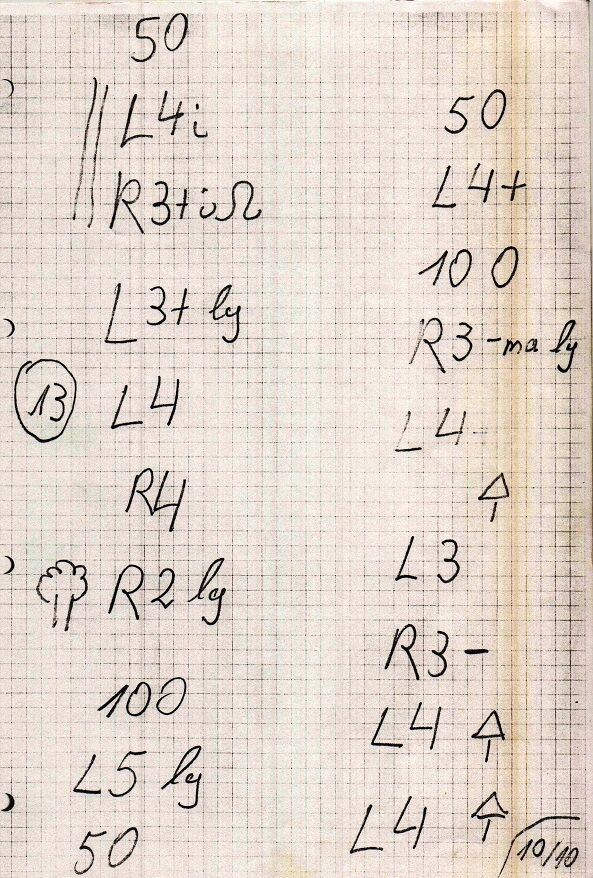 50
L4i
R3+iΩ
L3+ lg
13
L4
R4
R2 lg
100
L5 lg
50
50
L4+
100
R3-ma lg
L4-
L3
R3-
L4
L4
10/10